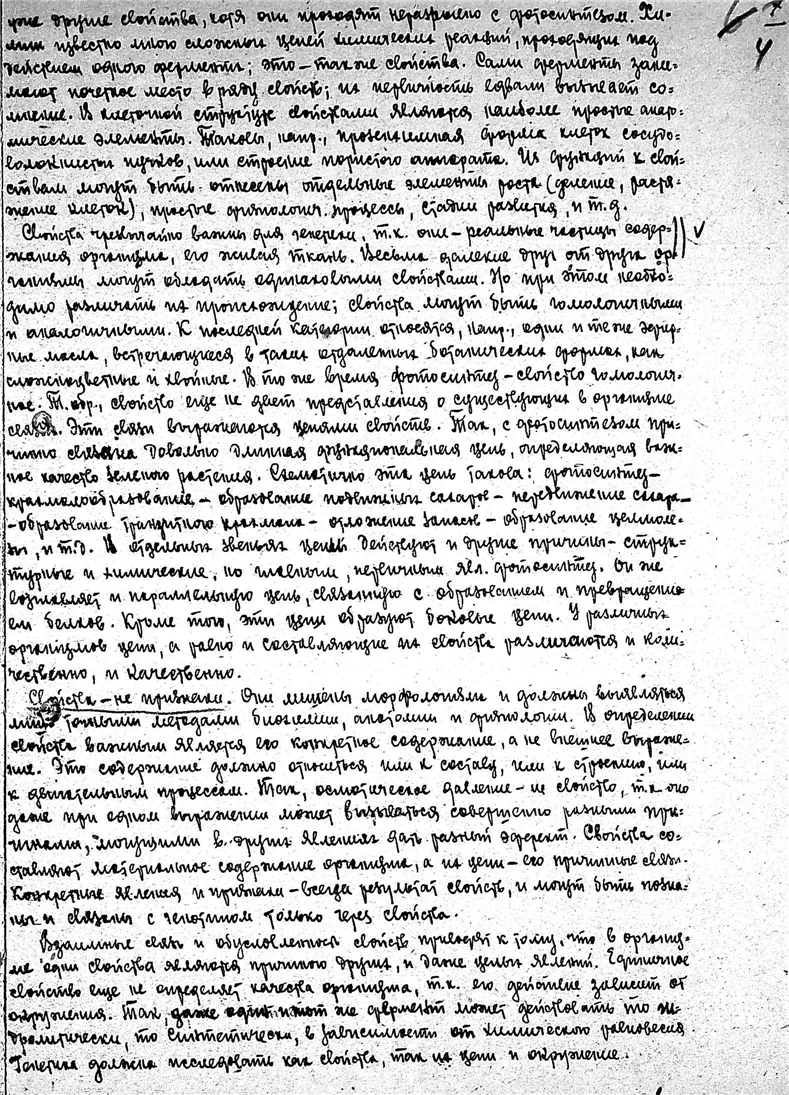 уже другие свойства, хотя они проходят неразрывно с фотосинтезом. Хи-
мии известно много сложных цепей химических реакций, проходящих под
действием одного фермента; это – также свойства. Сами ферменты зани-
мают почетное место в ряду свойств; их первичность едва ли вызывает со-
мнение. В клеточной структуре свойствами являются наиболее простые анато-
мические элементы. Таковы, напр., прозенхимная форма клеток сосудо-
волокнистых пучков, или строение пористого аппарата. Из функций к свой-
ствам могут быть отнесены отдельные элементы роста (деление, растя-
жение клеток), простые физиологич. процессы, стадии развития, и т.д.
Свойства чрезвычайно важны для генетики, т.к. они – реальные частицы содер-
жания организма, его живая ткань. Весьма далекие друг от друга ор-
ганизмы могут обладать одинаковыми свойствами. Но при этом необхо-
димо различать их происхождение; свойства могут быть гомологичными
и аналогичными. К последней категории относятся, напр., одни и те же эфир-
ные масла, встречающиеся в таких отдаленных ботанических формах, как
сложноцветные и хвойные. В то же время фотосинтез – свойство гомологич-
ное. Т. обр., свойство еще не дает представления о существующих в организме
связях. Эти связи выражаются цепями свойств. Так, с фотосинтезом при-
чинно связана довольно длинная функциональная цепь, определяющая важ-
ное качество зеленого растения. Схематично эта цепь такова: фотосинтез –
крахмалообразование – образование подвижных сахаров – передвижение сахара –
– образование транзитного крахмала – отложение запасов – образование целлюло-
зы, и т.д. В отдельных звеньях цепи действуют и другие причины – струк-
турные и химические, но главным, первичным явл. фотосинтез. Он же
возглавляет и параллельную цепь, связанную с образованием и превращени-
ем белков. Кроме того, эти цепи образуют боковые цепи. У различных
организмов цепи, а равно и составляющие их свойства различаются и коли-
чественно, и качественно.
Свойства – не признаки. Они лишены морфологизма и должны выявляться
лишь точными методами биохимии, анатомии и физиологии. В определении
свойства важным является его конкретное содержание, а не внешнее выраже-
ние. Это содержание должно относиться или к составу, или к строению, или
к двигательным процессам. Так, осмотическое давление – не свойство, т.к. оно
даже при одном выражении может вызываться совершенно разными при-
чинами, могущими в других явлениях дать разный эффект. Свойства со-
ставляют материальное содержание организма, а их цепи – его причинные связи.
Конкретные явления и признаки – всегда результат свойств, и могут быть позна-
ны и связаны с генотипом только через свойства.
Взаимные связи и обусловленность свойств приводят к тому, что в организ-
ме одни свойства являются причиною других, и даже целых явлений. Единичное
свойство еще не определяет качества организма, т.к. его действие зависит от
окружения. Так, даже один и тот же фермент может действовать то гид-
ролитически, то синтетически, в зависимости от химического равновесия.
Генетика должна исследовать как свойства, так их цепи и окружение.